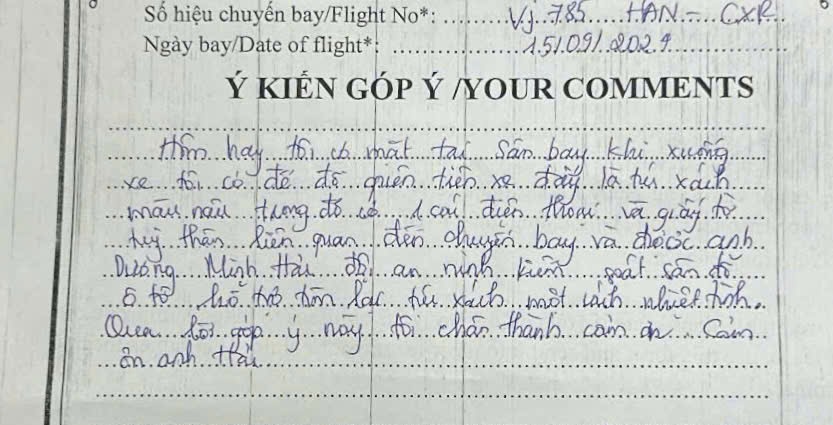 Số hiệu chuyến bay/Flight No*: Vj 785 HAN - CXR
Ngày bay/Date of flight*: 15/09/2024
Ý KIẾN GÓP Ý /YOUR COMMENTS
Hôm nay tôi có mặt tại sân bay khi xuống
xe tôi có để đồ quên trên xe đẩy là túi xách
màu nâu trong đó có 1 cái điện thoại và giấy tờ
tuỳ thân liên quan đến chuyến bay và được anh
Dương Minh Hải đội an ninh kiểm soát sân đỗ
ô tô hỗ trợ tìm lại túi xách một cách nhiệt tình.
Qua lời góp ý này tôi chân thành cảm ơn. Cảm
ơn anh Hải